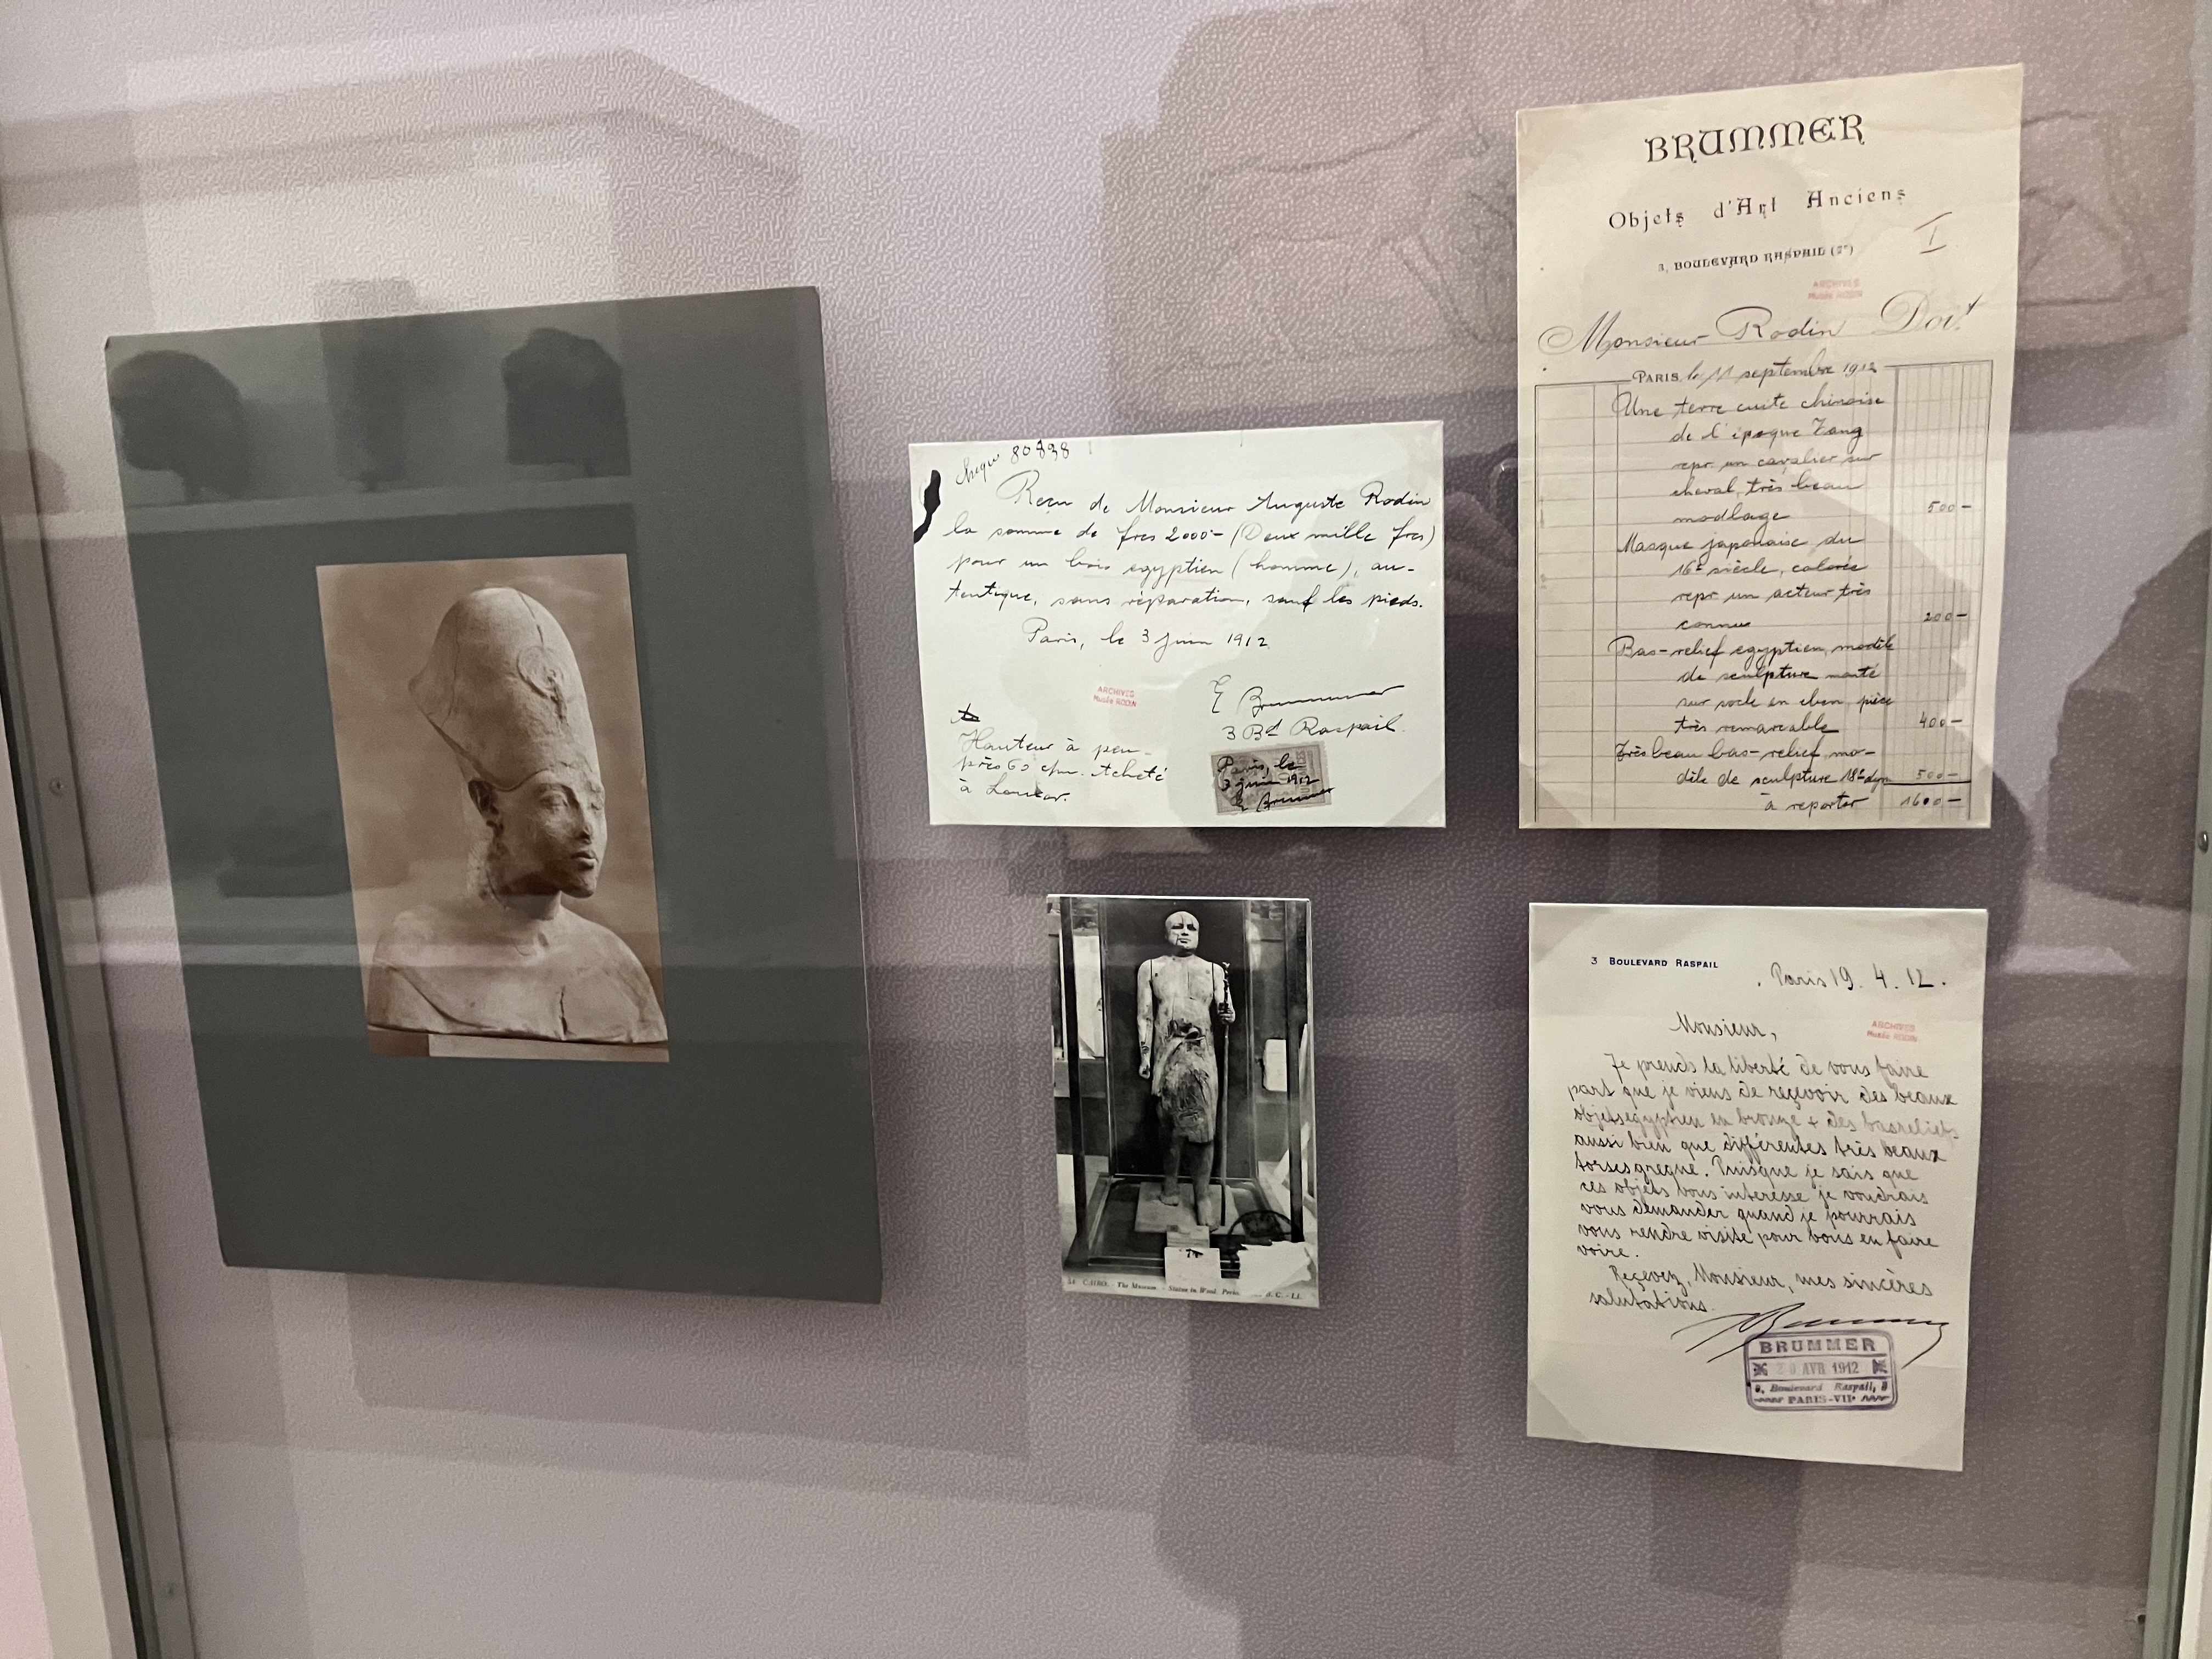 chèque 80838
Reçu de Monsieur Auguste Rodin
la somme de frcs 2000- (Deux mille frcs)
pour un bois egyptien (homme), au-
tentique, sans réparation, sauf les pieds.
Paris, le 3 juin 1912
E Brummer
3 Bd Raspail.
ARCHIVES
Musée RODIN
Hauteur à peu-
près 60 ctm. Acheté
à Louxor.
Paris, le
3 juin 1912
E Brummer
BRUMMER
Objets d'Art Anciens
3, BOULEVARD RASPAIL
I
ARCHIVES
Musée RODIN
Monsieur Rodin Doit
PARIS, le 11 septembre 1912
Une terre cuite chinoise
de l'epoque Tang
repr. un cavalier sur
cheval, très beau
modlage 500-
Masque japonaise du
16e siècle, colorée
repr. un acteur très
connue 200-
Bas-relief egyptien, modèle
de sculpture monté
sur socle en eben, pièce
très remarcable 400-
Très beau bas-relief, mo-
dèle de sculpture 18e dyn 500-
à reporter 1600-
CAIRO. - The Museum - Statue in Wood. B. C. - LL.
3 BOULEVARD RASPAIL
Paris 19. 4. 12.
ARCHIVES
Musée RODIN
Monsieur,
Je prends la liberté de vous faire
part que je viens de reçevoir des beaux
objets egyptien en bronze + des basreliefs
aussi bien que différentes très beaux
torses greque. Puisque je sais que
ces objets vous interesse je voudrais
vous demander quand je pourrais
vous rendre visite pour vous en faire
voire.
Reçevez, Monsieur, mes sincères
salutations.
Brummer
BRUMMER
20 AVR 1912
3, Boulevard Raspail, 3
PARIS-VIIe